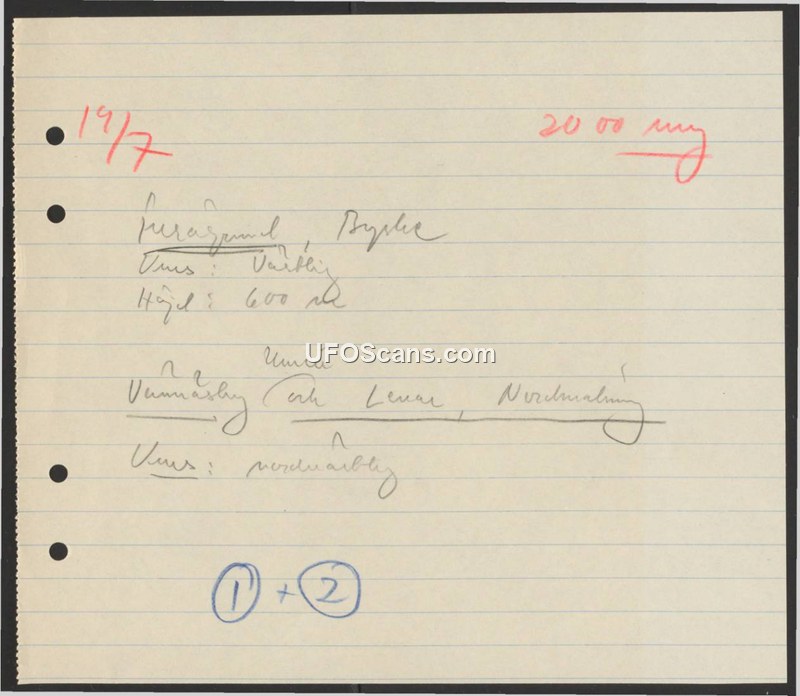 19/7
2000
Byske
Kurs: Västlig
Höjd: 600 m
UFOScans.com
Umeå
Vännäsby och Levar, Nordmaling
Kurs: nordvästlig
1 + 2